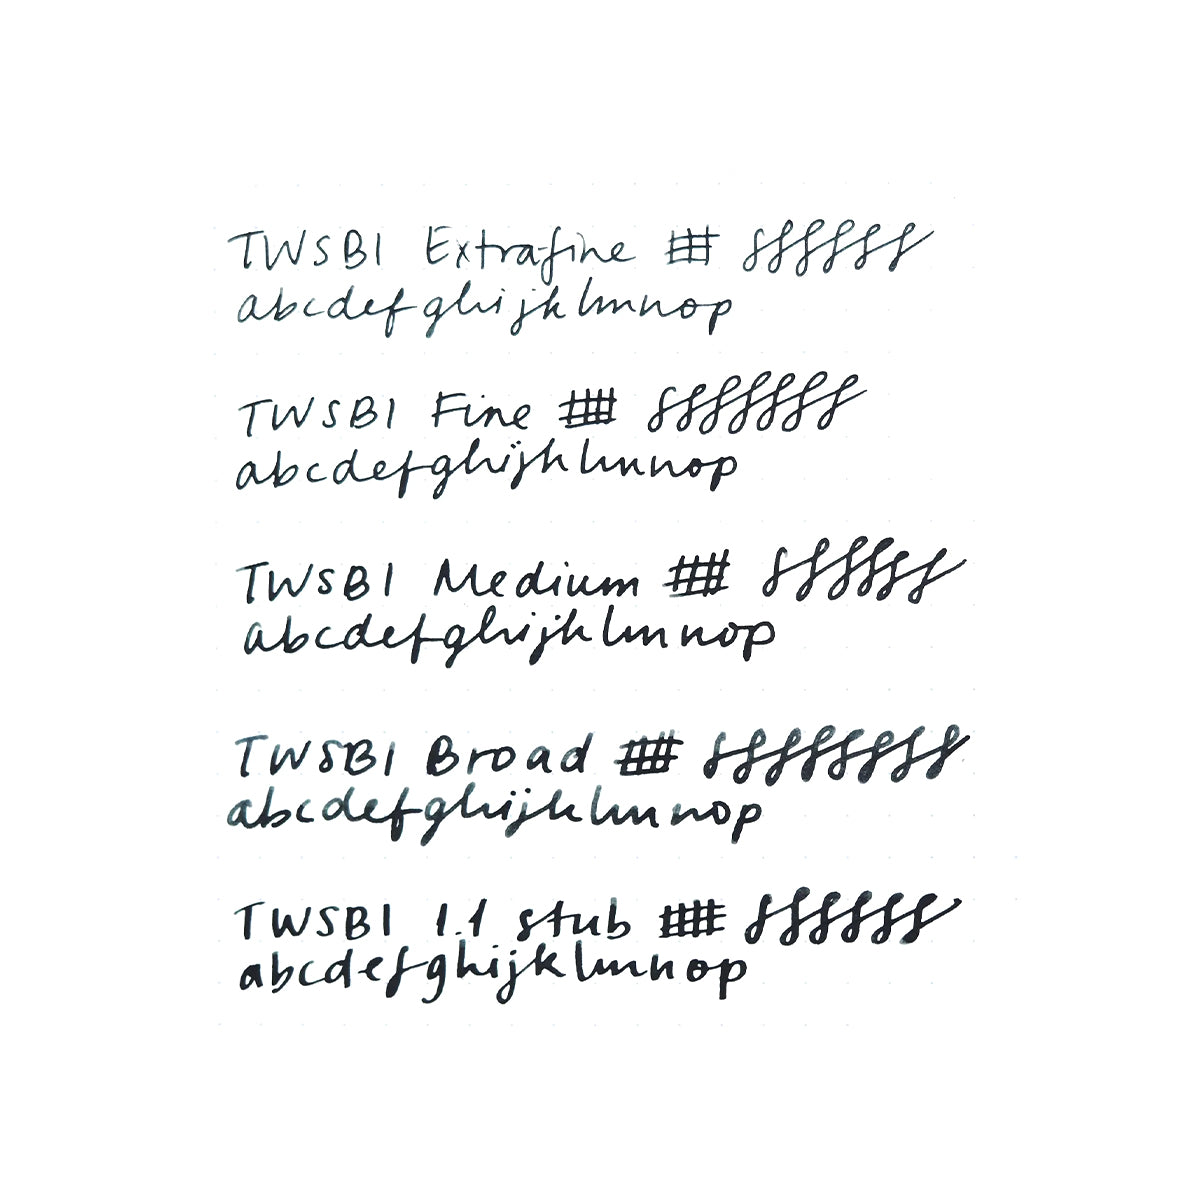 TWSBI Extra-fine
abcdefghijklmnop
TWSBI Fine
abcdefghijklmnop
TWSBI Medium
abcdefghijklmnop
TWSBI Broad
abcdefghijklmnop
TWSBI 1.1 stub
abcdefghijklmnop